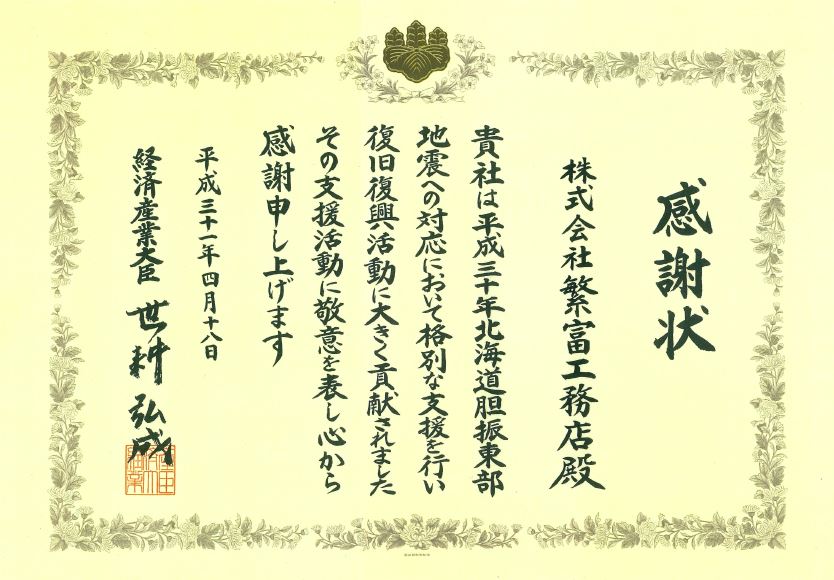 感謝状
株式会社繁富工務店殿
貴社は平成三十年北海道胆振東部
地震への対応において格別な支援を行い
復旧復興活動に大きく貢献されました
その支援活動に敬意を表し心から
感謝申し上げます
平成三十一年四月十八日
経済産業大臣 世耕弘成